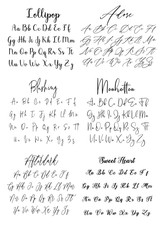 Lollipop
Aa Bb Cc Dd Ee Ff
Gg Hh Ii Jj Kk Ll Mm
Nn Oo Pp Qq Rr Ss Tt
Uu Vv Ww Xx Yy Zz
Adore
Aa Bb Cc Dd Ee Ff
Gg Hh Ii Jj Kk Ll Mm
Nn Oo Pp Qq Rr Ss Tt
Uu Vv Ww Xx Yy Zz
Blushing
Aa Bb Cc Dd Ee Ff
Gg Hh Ii Jj Kk Ll Mm
Nn Oo Pp Qq Rr Ss Tt
Uu Vv Ww Xx Yy Zz
Manhattan
Aa Bb Cc Dd Ee Ff
Gg Hh Ii Jj Kk Ll Mm
Nn Oo Pp Qq Rr Ss Tt
Uu Vv Ww Xx Yy Zz
Aa Bb Cc Dd Ee Ff
Gg Hh Ii Jj Kk Ll Mm
Nn Oo Pp Qq Rr Ss Tt
Uu Vv Ww Xx Yy Zz
Sweet Heart
Aa Bb Cc Dd Ee Ff
Gg Hh Ii Jj Kk Ll Mm
Nn Oo Pp Qq Rr Ss Tt
Uu Vv Ww Xx Yy Zz